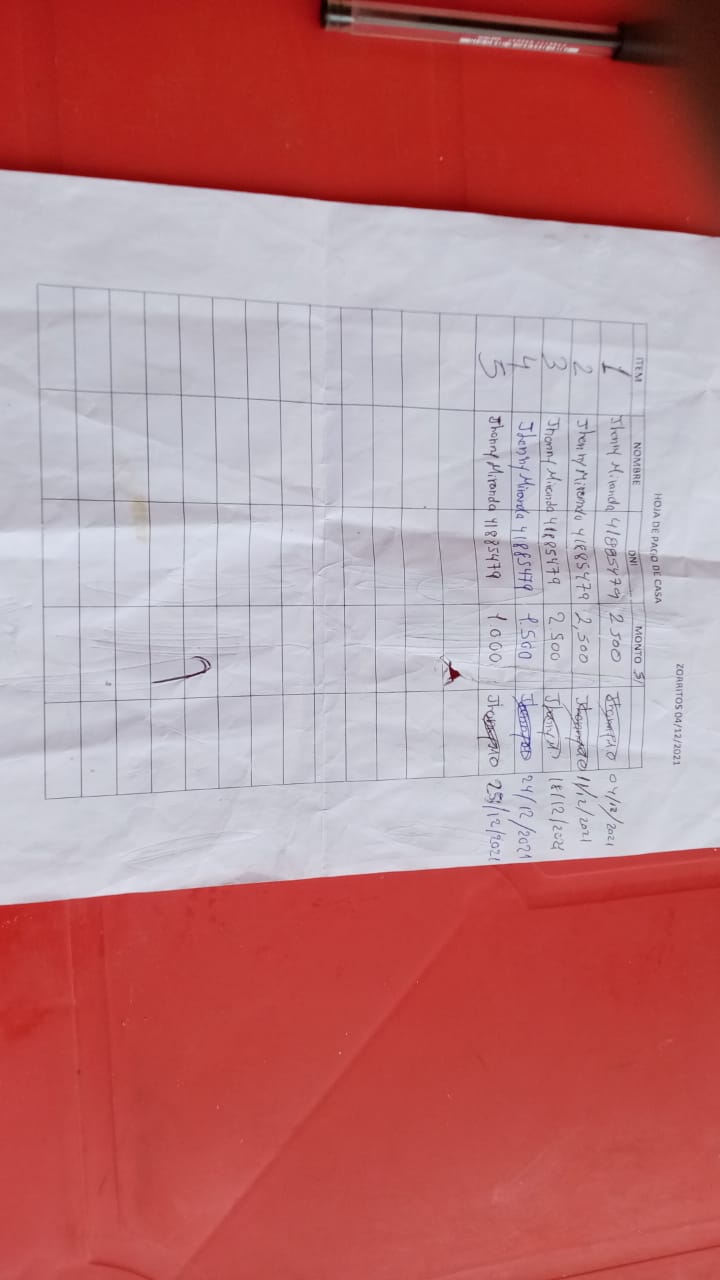 ZORRITOS 04/12/2021
HOJA DE PAGO DE CASA
ITEM NOMBRE DNI MONTO S/
1 Jhonny Miranda 41885479 2.500 04/12/2021
2 Jhonny Miranda 41885479 2,500 11/12/2021
3 Jhonny Miranda 41885479 2.500 18/12/2021
4 Jhonny Miranda 41885479 1.500 24/12/2021
5 Jhonny Miranda 41885479 1.000 /12/2021